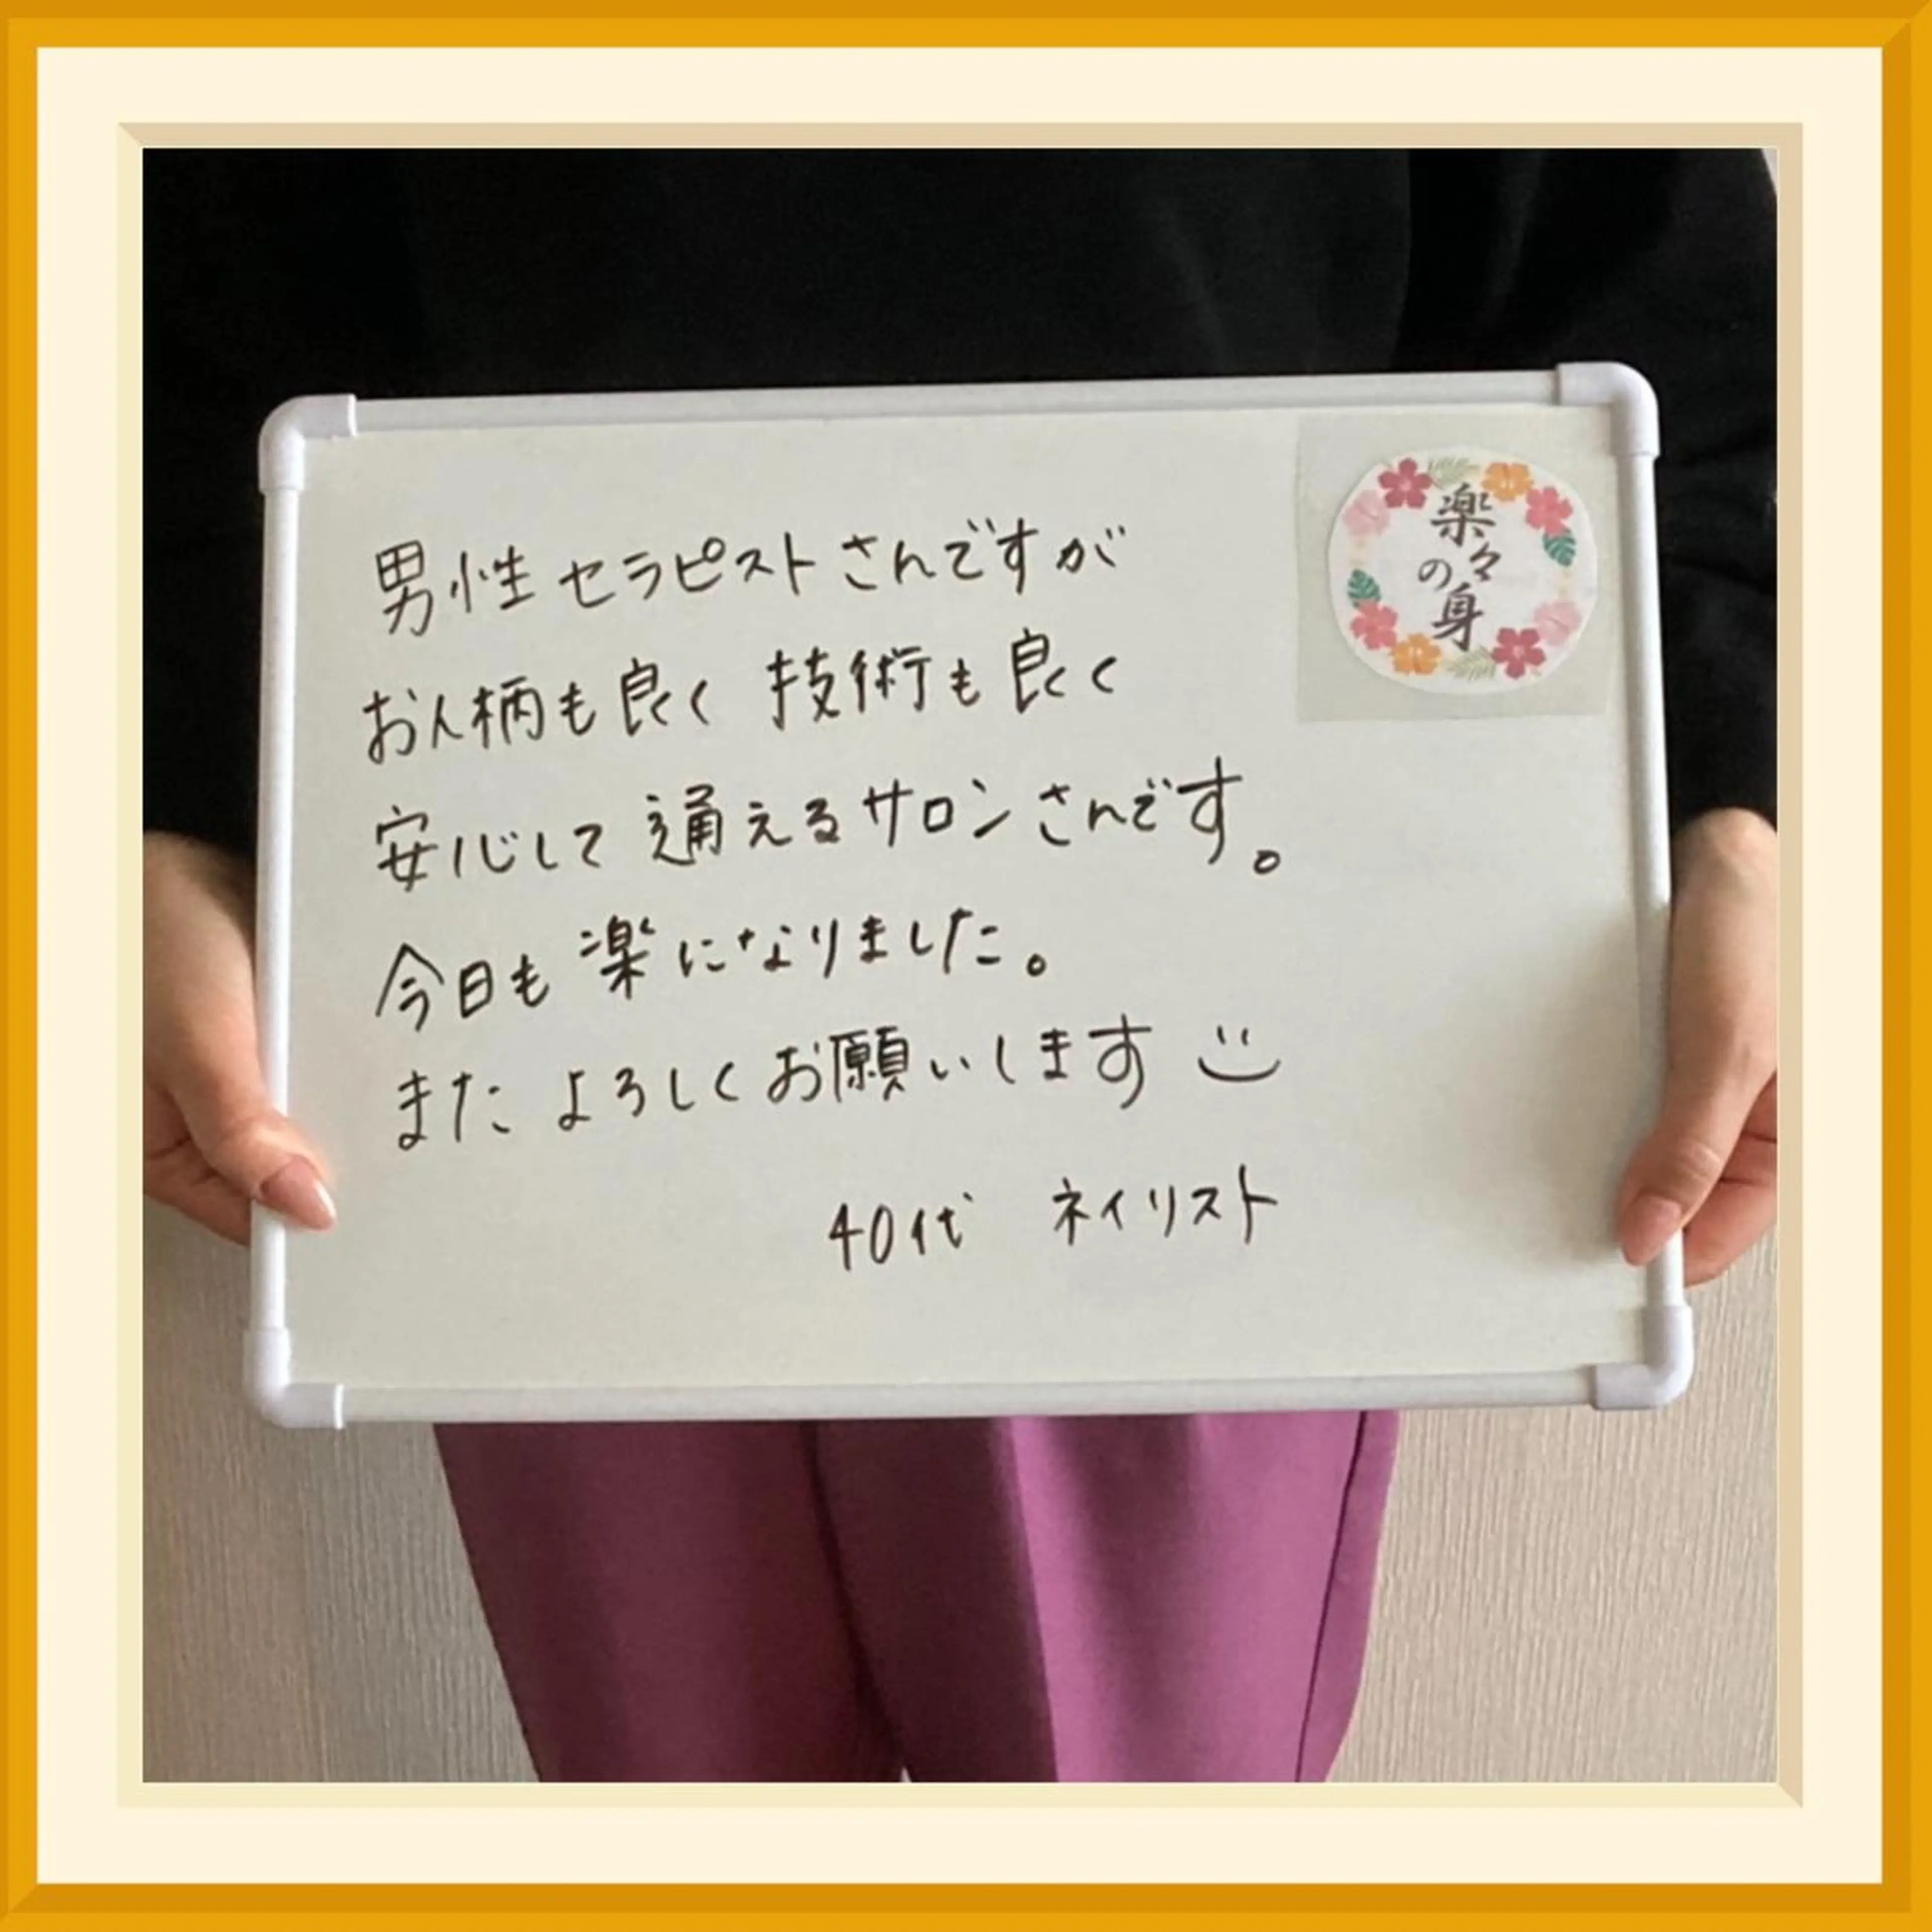 男性セラピストさんですが
お人柄も良く 技術も良く
安心して 通えるサロンさんです。
今日も 楽になりました。
また よろしくお願いします
40代 ネイリスト
楽々の身